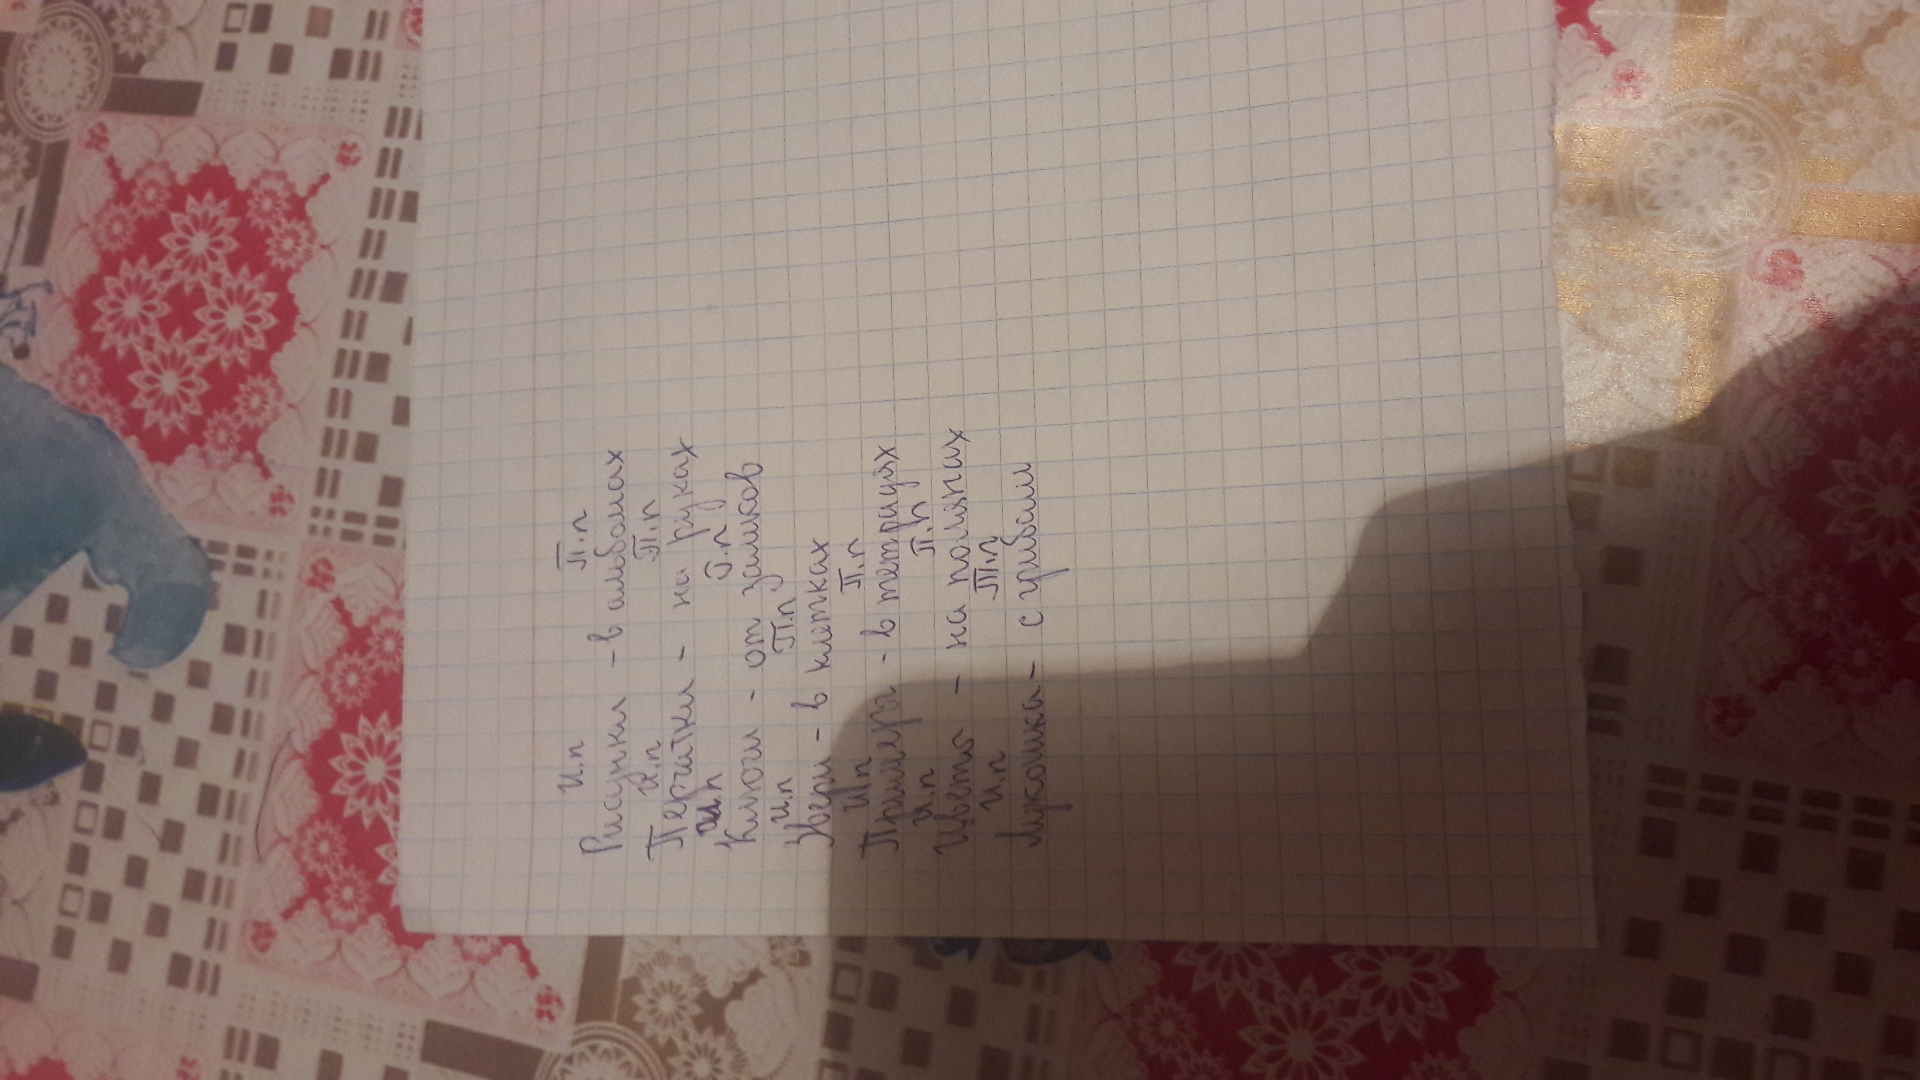 И.п П.п
Рисунки - в альбомах
И.п П.п
Перчатки - на руках
И.п П.п
Ключи - от замков
И.п П.п
Звери - в клетках
И.п П.п
Примеры - в тетрадях
И.п П.п
Цветы - на полянах
И.п Т.п
Лукошка - с грибами